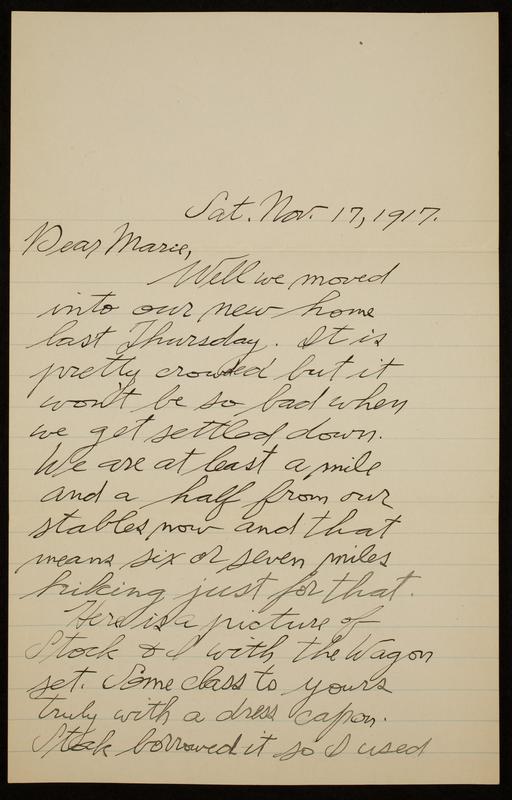 Sat. Nov. 17, 1917.
Dear Marie,
Well we moved
into our new home
last Thursday. It is
pretty crowded but it
won't be so bad when
we get settled down.
We are at least a mile
and a half from our
stables now and that
means six or seven miles
hiking just for that.
Here is a picture of
Stock & I with the Wagon
set. Some class to yours
truly with a dress capon.
Stock borrowed it so I used